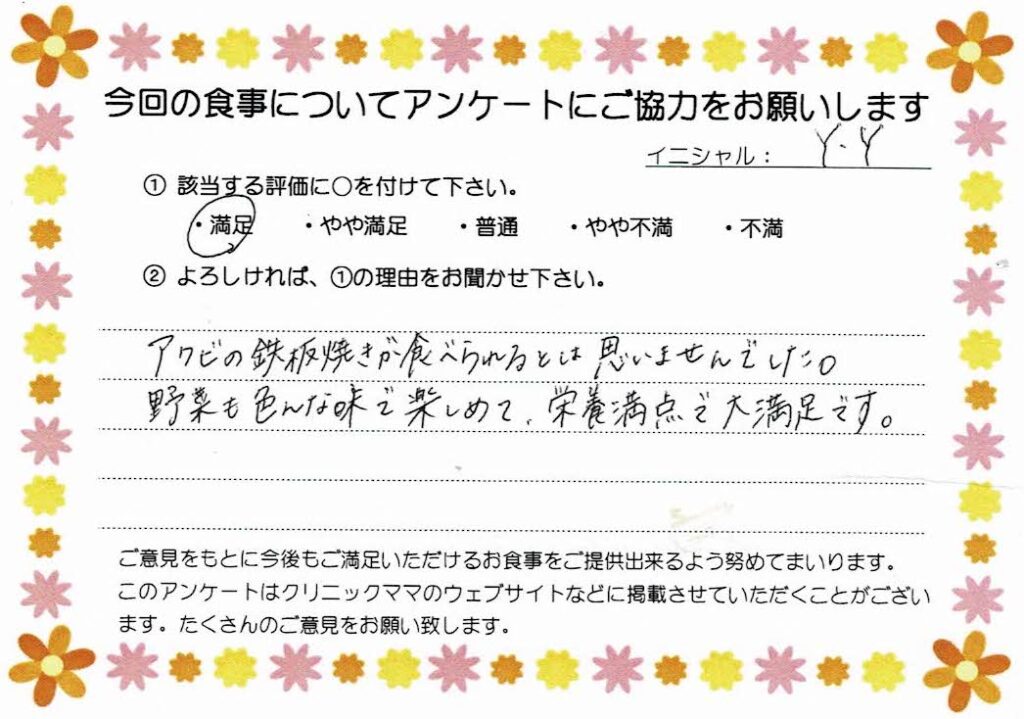 今回の食事についてアンケートにご協力をお願いします
イニシャル： Y.Y
① 該当する評価に○を付けて下さい。
・満足 ・やや満足 ・普通 ・やや不満 ・不満
② よろしければ、①の理由をお聞かせ下さい。
アワビの鉄板焼きが食べられるとは思いませんでした。
野菜も色んな味で楽しめて、栄養満点で大満足です。
ご意見をもとに今後もご満足いただけるお食事をご提供出来るよう努めてまいります。
このアンケートはクリニックママのウェブサイトなどに掲載させていただくことがござい
ます。たくさんのご意見をお願い致します。